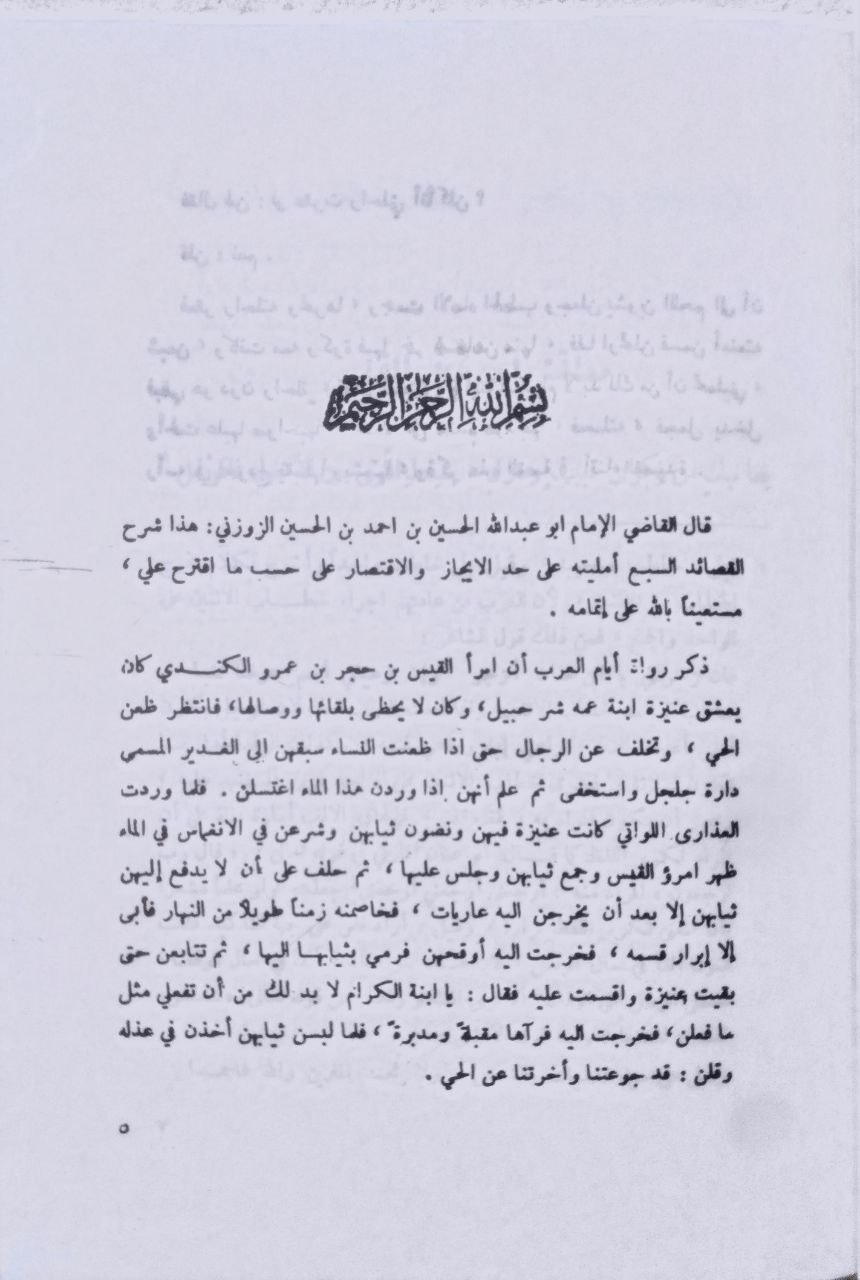 بسم الله الرحمن الرحيم
قال القاضي الإمام ابو عبدالله الحسين بن احمد بن الحسين الزوزني: هذا شرح
القصائد السبع أمليته على حد الايجاز والاقتصار على حسب ما اقترح علي ،
مستعيناً بالله على إتمامه .
ذكر رواة أيام العرب أن امرأ القيس بن حجر بن عمرو الكندي كان
يعشق عنيزة ابنة عمه شر حبيل، وكان لا يحظى بلقائها ووصالها، فانتظر ظعن
الحي ، وتخلف عن الرجال حتى اذا ظعنت النساء سبقهن الى الغدير المسمى
دارة جلجل واستخفى ثم علم أنهن اذا وردن هذا الماء اغتسلن . فلما وردت
العذارى اللواتي كانت عنيزة فيهن ونضون ثيابهن وشرعن في الانغماس في الماء
ظهر امرؤ القيس وجمع ثيابهن وجلس عليها ، ثم حلف على أن لا يدفع إليهن
ثيابهن إلا بعد أن يخرجن اليه عاريات ، فخاصمنه زمناً طويلاً من النهار فأبى
إلا إبرار قسمه ، فخرجت اليه أوقحهن فرمي بثيابها اليها ، ثم تتابعن حتى
بقيت عنيزة واقسمت عليه فقال : يا ابنة الكرام لا بد لك من أن تفعلي مثل
ما فعلن، فخرجت اليه فرآها مقبلةً ومدبرةً ، فلما لبسن ثيابهن أخذن في عذله
وقلن : قد جوعتنا وأخرتنا عن الحي .
٥